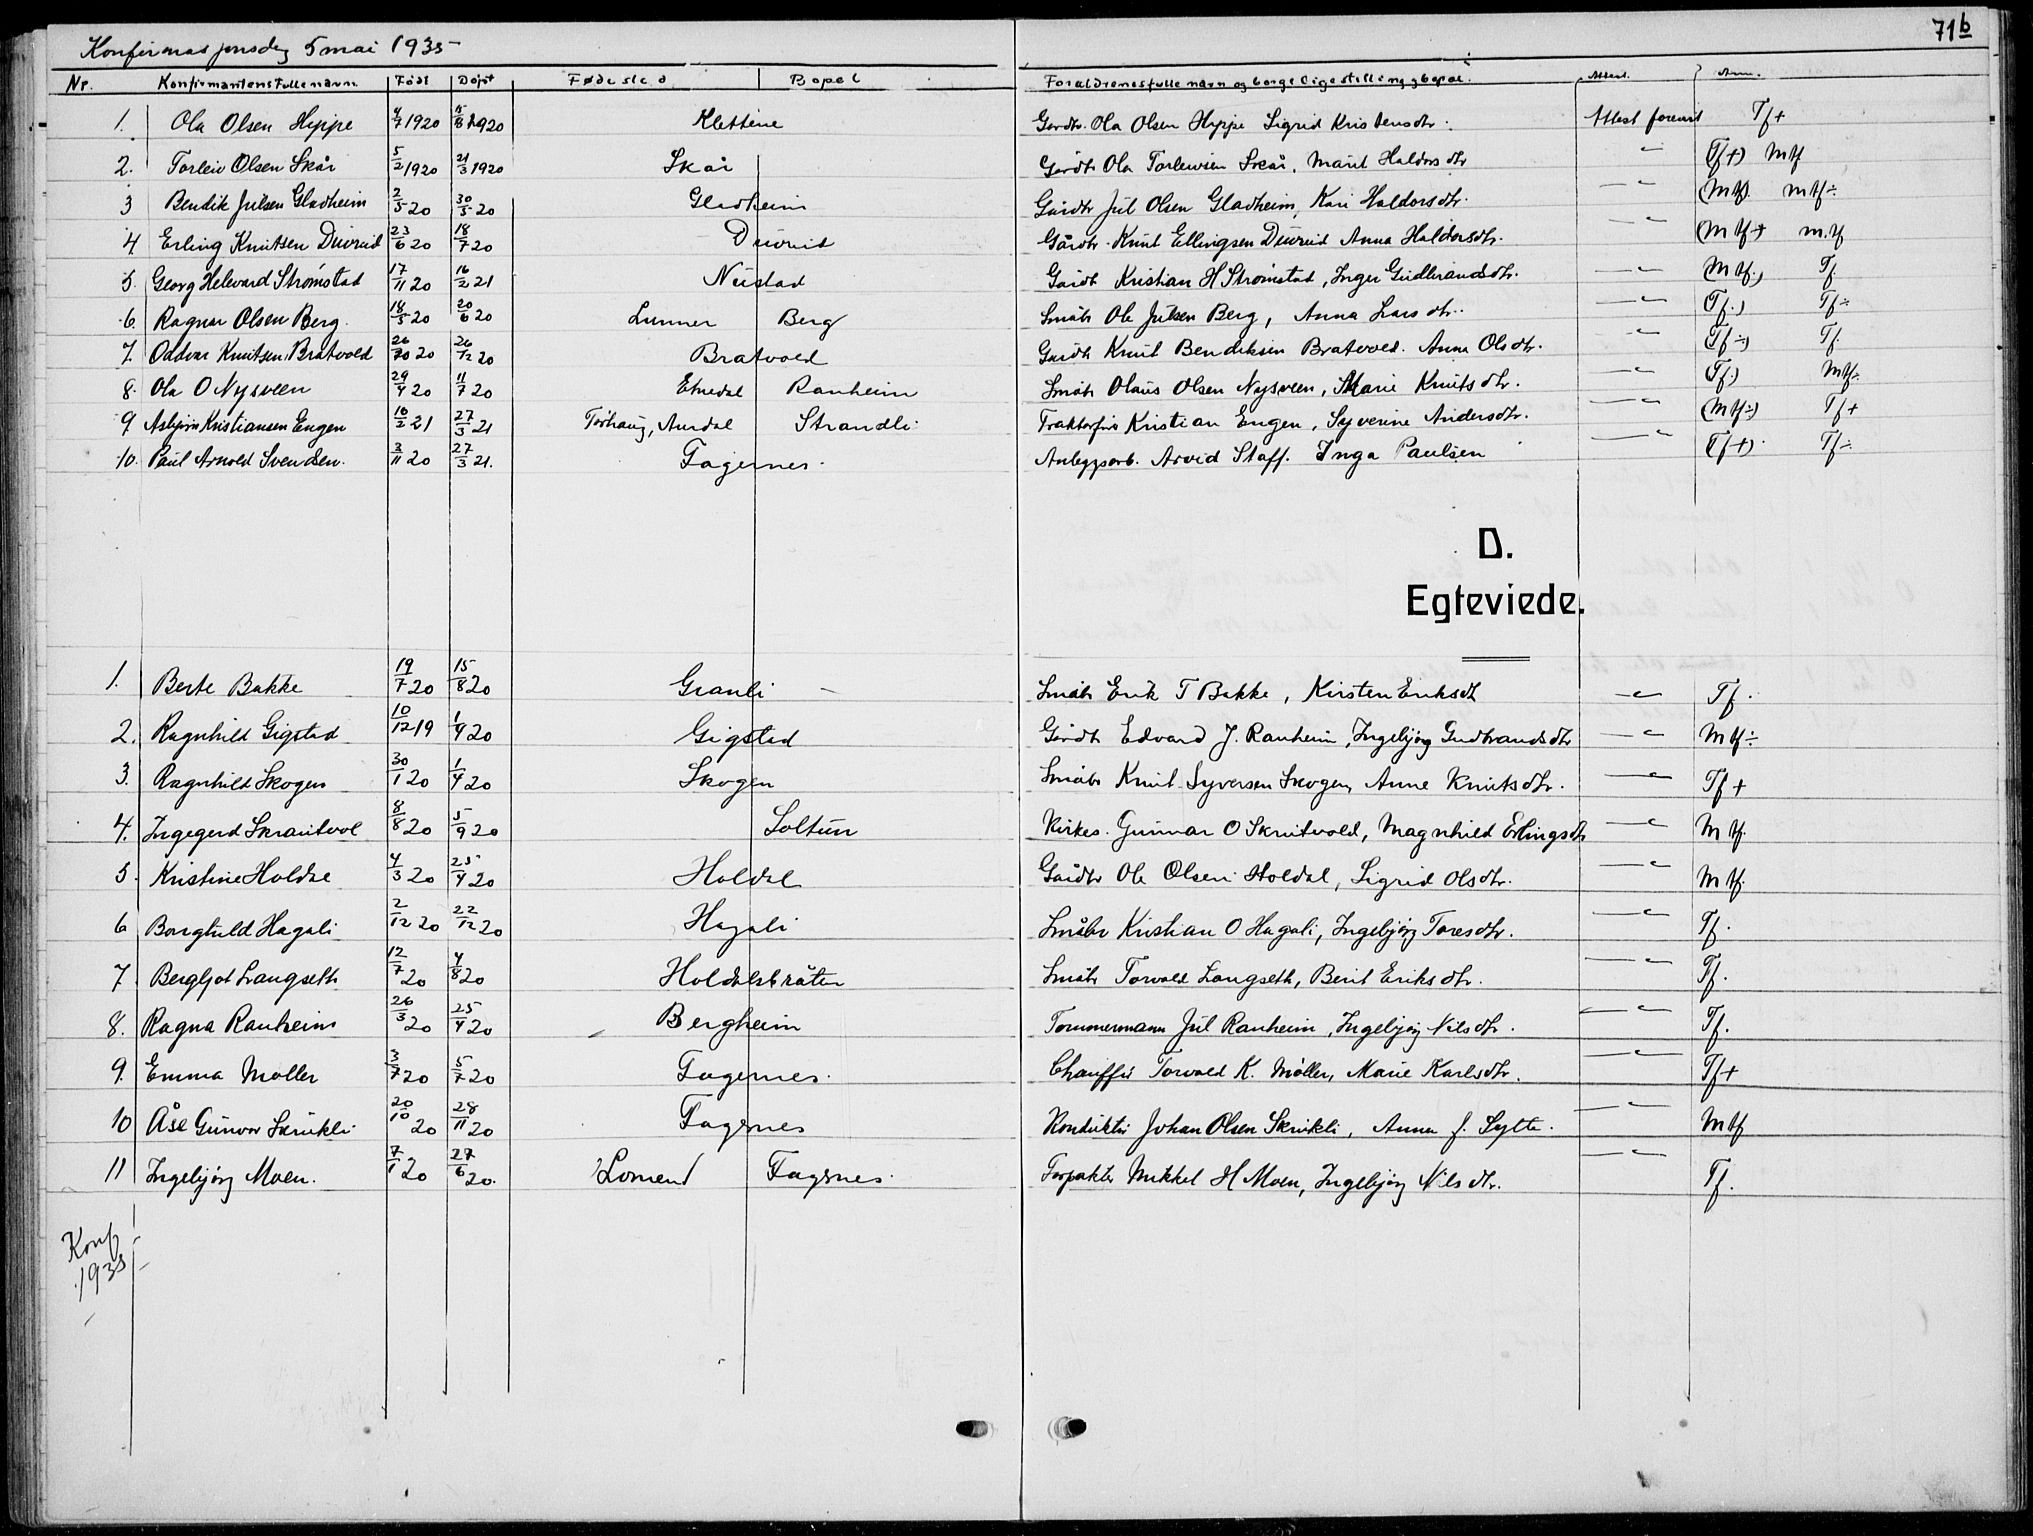 71b
Konfirmasjonsdag 5 mai 1935
Nr. Konfirmantens fulle navn. Født Døpt Fødested Bopel Foreldrenes fulle navn og borgerlige stilling og bopel. Attest. Anm.
1. Ola Olsen Hippe 4/7 1920 15/8 1920 Klettene Gårdbr. Ola Olsen Hippe Sigrid Kristensdtr. Attest forevist Tf+
2. Torleiv Olsen Skår 5/2 1920 21/3 1920 Skår Gårdbr Ola Torleivsen Skår, Marit Haldorsdtr — " — (Tf+) Mtf
3 Bendik Julsen Gladheim 2/5 20 30/5 20 Gladheim Gårdbr Jul Olsen Gladheim, Kari Haldorsdtr. — " — (Mtf) mtf÷
4. Erling Knutsen Duvrud 23/6 20 18/7 20 Duvrud Gårdbr. Knut Ellingsen Duvrud Anna Haldorsdtr. — " — (Mtf+ m.tf
5. Georg Helevard Strømstad 17/11 20 16/2 21 Neistad Gårdb Kristian H Strømstad, Inger Gudbrandsdtr. — " — (Mtf.) Tf.
6. Ragnar Olsen Berg. 18/5 20 20/6 20 Lunner Berg Småbr Ole Julsen Berg, Anna Larsdtr. — " — (Tf.) Tf÷
7. Oddvar Knutsen Bratvold 26/10 20 26/12 20 Bratvold Gårdbr Knut Bendiksen Bratvold. Anna Olsdtr. — " — (Tf÷) Tf.
8. Ola O Nysveen 29/4 20 11/7 20 Etnedal Ranheim Småbr Olaus Olsen Nysveen, Marie Knutsdtr. — " — (Tf.) Mtf÷
9 Asbjørn Kristiansen Engen 16/2 21 27/3 21 Torhaug, Aurdal Strandli Traktorfører Kristian Engen, Syverine Andersdtr. — " — (Mtf÷) Tf+
10. Paul Arnold Svendsen. 3/11 20 27/3 21. Fagernes. Anleggsarb. Arvid Staff. Inga Paulsen — " — (Tf+) Tf÷
D.
Egteviede.
1. Berte Bakke 19/7 20 15/8 20 Granli — Småbr Erik T Bakke, Kirsten Eriksdtr — " — Tf.
2. Ragnhild Gigstad 10/12 19 1/4 20 Gigstad Gårdbr Edvard J. Ranheim, Ingebjørg Gudbrandsdtr — " — Mtf÷
3. Ragnhild Skogen 30/1 20 1/4 20 Skogen Småbr Knut Syversen Skogen, Anne Knutsdtr. — " — Tf+
4. Ingegerd Skrautvol 8/8 20 5/9 20 Soltun Kirkes. Gunnar O Skrutvold, Magnhild Erlingsdtr — " — Mtf.
5. Kristine Holdal 4/3 20 25/4 20 Holdal Gårdbr Ole Olsen Holdal, Sigrid Olsdtr. — " — Mtf.
6 Borghild Hagali 2/12 20 22/12 20 Hagali Småbr Kristian O Hagali, Ingebjørg Toresdtr. — " — Tf.
7 Bergljot Langseth 12/7 20 4/8 20 Holdalsbråten Småbr Torvald Langseth, Berit Eriksdtr. — " — Tf.
8. Ragna Ranheim 26/3 20 25/4 20 Bergheim Tømmermann Jul Ranheim, Ingebjørg Nilsdtr. — " — Tf.
9. Emma Møller 3/7 20 5/7 20 Fagernes. Chauffør Torvald K. Møller, Marie Karlsdtr. — " — Tf+
10 Åse Gunvor Skrukli 20/10 20 28/11 20 Fagernes Konduktør Johan Olsen Skrukli, Anna J. Sylte. — " — Mtf
11 Ingebjørg Moen. 7/1 20 27/6 20. Lomen Fagernes. Forpakter Mikkel H Moen, Ingebjørg Nilsdtr. — " — Tf.
Konf
1935